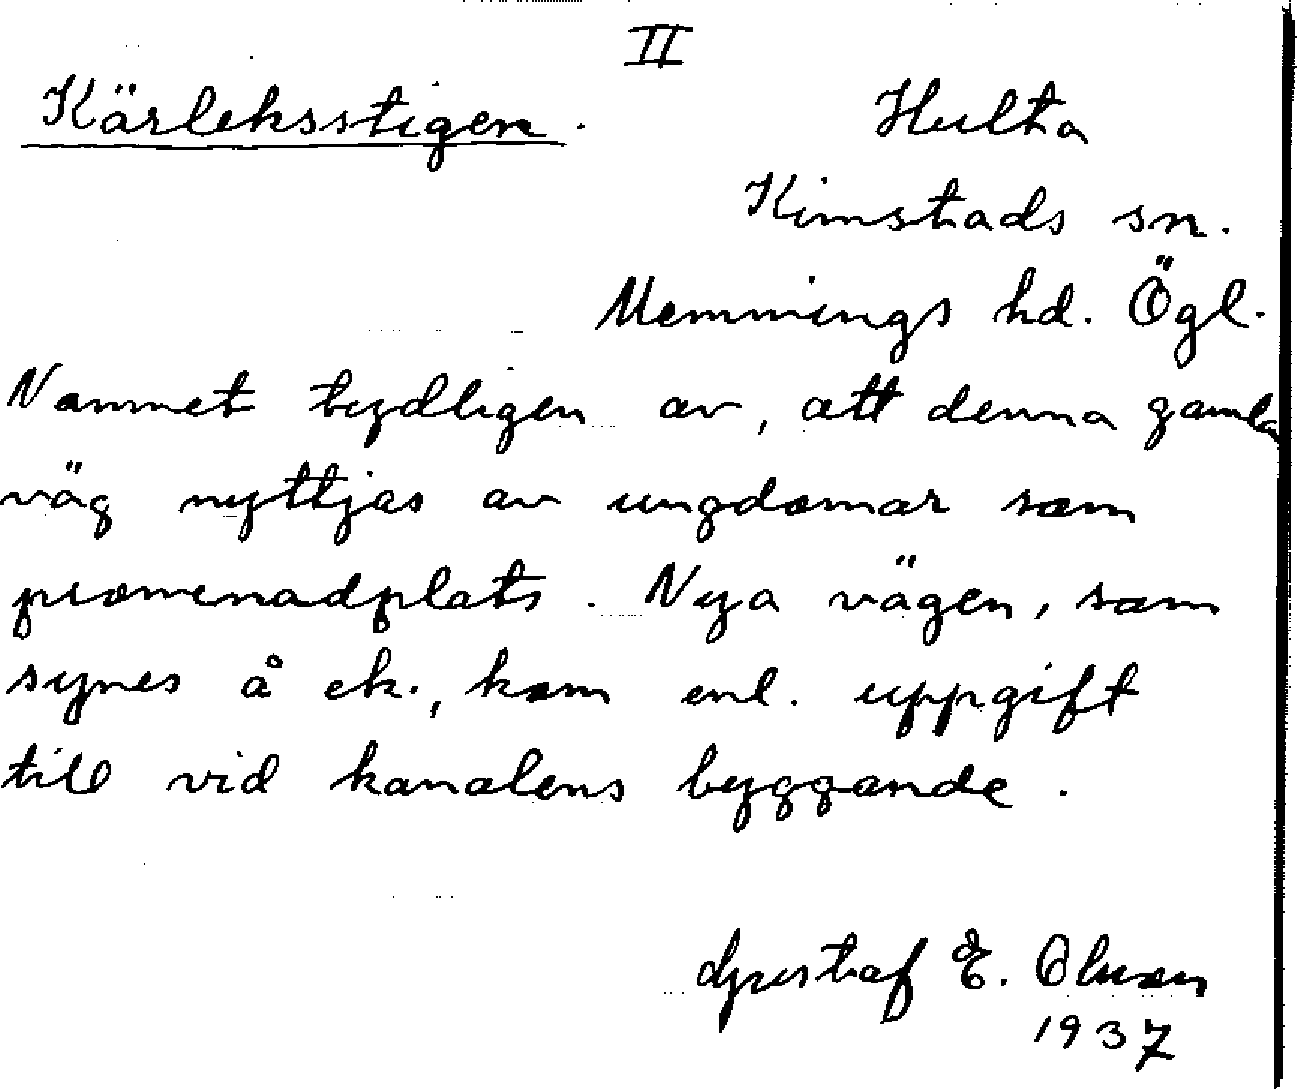 II
Kärleksstigen. Hulta
Kimstads sn.
Memmings hd. Ögl.
Namnet tydligen av, att denna gamla
väg nyttjas av ungdomar som
promenadplats. Nya vägen, som
synes å ek., kom enl. uppgift
till vid kanalens byggande.
Gustaf E. Olsson
1937